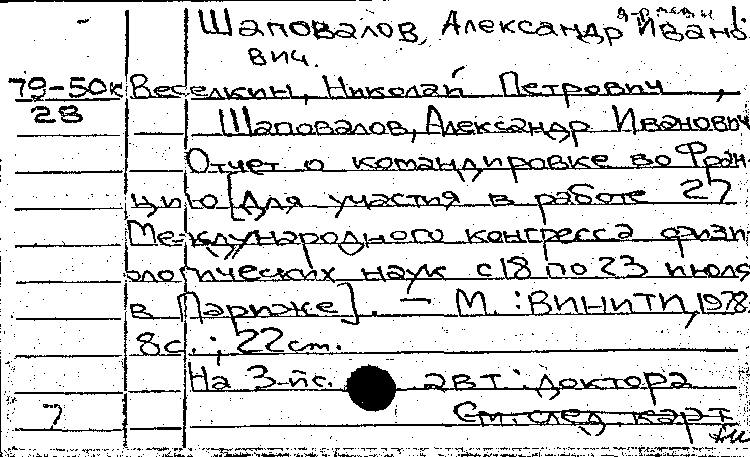 Шаповалов, Александр Ивано-
вич.
79-50к Веселкин, Николай Петрович,
28 Шаповалов, Александр Иванович
Отчет о командировке во Фран-
цию [Для участия в работе 27
Международного конгресса физи-
ологических наук с 18 по 23 июля
в Париже]. — М. : ВИНИТИ, 1978
8 с. ; 22 см.
На 3-й с. авт. : доктора
7 См. след. карт